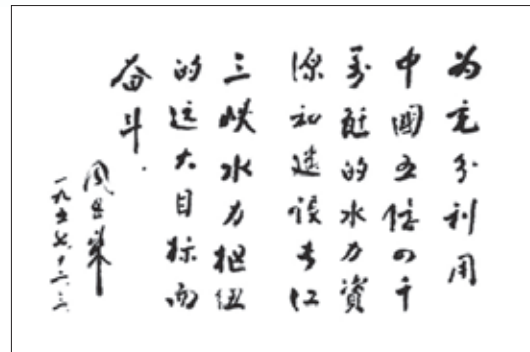 为充分利用
中國五億四千
万瓩的水力資
源和建設长江
三峡水力枢纽
的远大目标而
奋斗.
周恩来
一九五七·十二·三